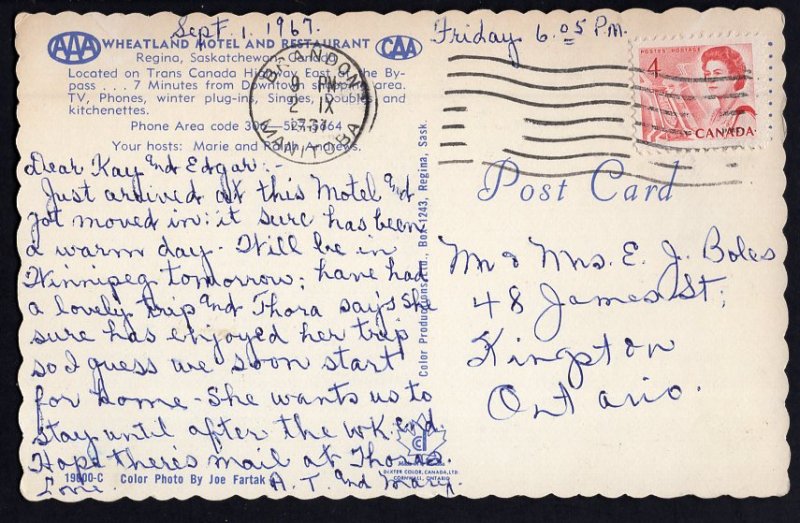 Sept. 1, 1967.
Friday 6.05 P.M.
AAA WHEATLAND MOTEL AND RESTAURANT CAA
Regina, Saskatchewan,
Located on Trans Canada Highway East the By-
pass . . . 7 Minutes from Downtown shopping area.
TV, Phones, winter plug-ins, Singles, Doubles and
kitchenettes.
Phone Area code
Your hosts: Marie and Ralph Andrews.
BRANDON
PM
2 IX
MANITOBA
POSTES POSTAGE
4
CANADA
Dear Kay and Edgar:-
Just arrived at this Motel and
got moved in: it sure has been
a warm day. Will be in
Winnipeg tomorrow; have had
a lovely trip and Thora says she
sure has enjoyed her trip
so I guess we soon start
for home - She wants us to
stay until after the wk. end.
Hope there's mail at Thoras.
Love. A. T. and Mary.
Color Productions Ltd., Box 1243, Regina, Sask
Post Card
Mr & Mrs. E. J. Boles
48 James St;
Kingston
Ontario.
DEXTER COLOR, CANADA, LTD.
CORNWALL, ONTARIO
19800-C Color Photo By Joe Fartak